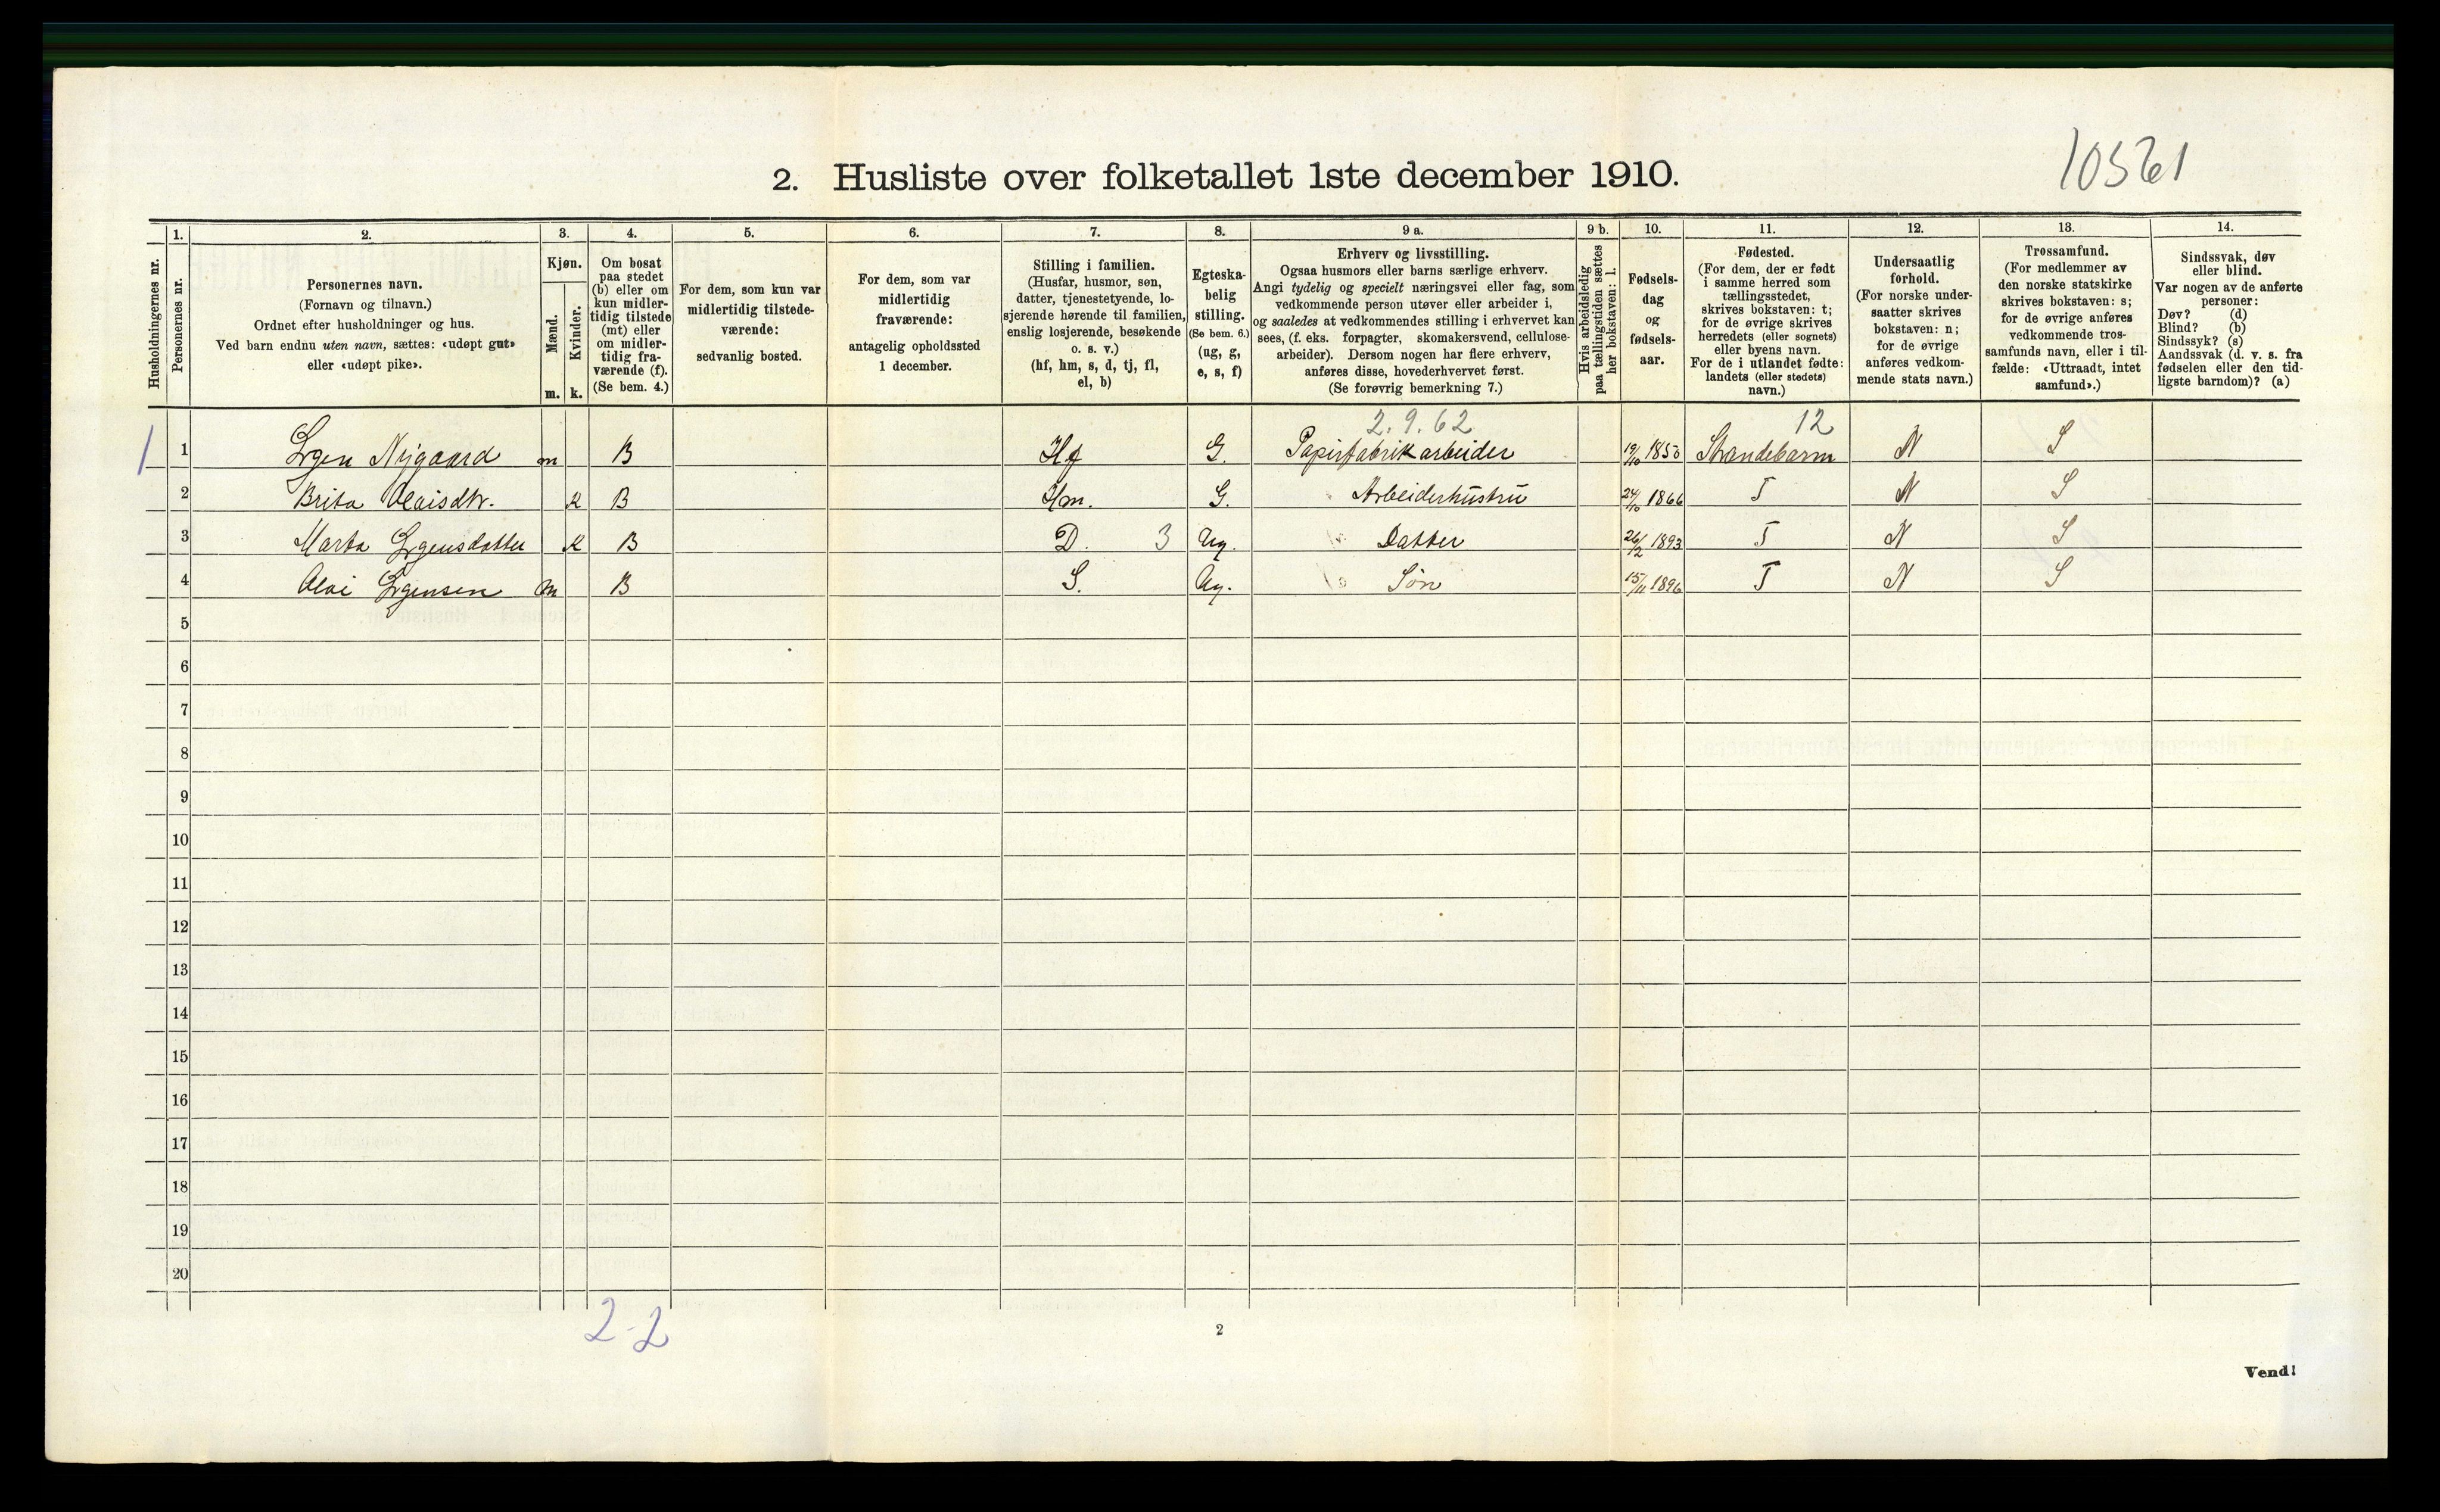 2. Husliste over folketallet 1ste december 1910.
10561
Husholdningernes nr.
1.
Personernes nr.
2.
Personernes navn.
(Fornavn og tilnavn.)
Ordnet efter husholdninger og hus.
Ved barn endnu uten navn, sættes: «udøpt gut»
eller «udøpt pike».
3.
Kjøn.
Mænd.
Kvinder.
m. k.
4.
Om bosat
paa stedet
(b) eller om
kun midler-
tidig tilstede
(mt) eller
om midler-
tidig fra-
værende (f).
(Se bem. 4.)
5.
For dem, som kun var
midlertidig tilstede-
værende:
sedvanlig bosted.
6.
For dem, som var
midlertidig
fraværende:
antagelig opholdssted
1 december.
7.
Stilling i familien.
(Husfar, husmor, søn,
datter, tjenestetyende, lo-
sjerende hørende til familien,
enslig losjerende, besøkende
o. s. v.)
(hf, hm, s, d, tj, fl,
el, b)
8.
Egteska-
belig
stilling.
(Se bem. 6.)
(ug, g,
e, s, f)
9 a.
Erhverv og livsstilling.
Ogsaa husmors eller barns særlige erhverv.
Angi tydelig og specielt næringsvei eller fag, som
vedkommende person utøver eller arbeider i,
og saaledes at vedkommendes stilling i erhvervet kan
sees, (f. eks. forpagter, skomakersvend, cellulose-
arbeider). Dersom nogen har flere erhverv,
anføres disse, hovederhvervet først.
(Se forøvrig bemerkning 7.)
9 b.
Hvis arbeidsledig
paa tællingstiden sættes
her bokstaven: l.
10.
Fødsels-
dag
og
fødsels-
aar.
11.
Fødested.
(For dem, der er født
i samme herred som
tællingsstedet,
skrives bokstaven: t;
for de øvrige skrives
herredets (eller sognets)
eller byens navn.
For de i utlandet fødte:
landets (eller stedets)
navn.)
12.
Undersaatlig
forhold.
(For norske under-
saatter skrives
bokstaven: n;
for de øvrige
anføres vedkom-
mende stats navn.)
13.
Trossamfund.
(For medlemmer av
den norske statskirke
skrives bokstaven: s;
for de øvrige anføres
vedkommende tros-
samfunds navn, eller i til-
fælde: «Uttraadt, intet
samfund».)
14.
Sindssvak, døv
eller blind.
Var nogen av de anførte
personer:
Døv? (d)
Blind? (b)
Sindssyk? (s)
Aandssvak (d. v. s. fra
fødselen eller den tid-
ligste barndom)? (a)
2.9.62 12
1 1 Ørgen Nygaard m B Hf G. Papirfabrikarbeider 19/10 Strandebarm N S
2 Brita Olaisdtr. K B Hm. G. Arbeiderhustru 24/10 1866 T N S
3 Marta Ørgensdatter K B D. 3 Ug. Datter 26/2 1893 T N S
4 Olai Ørgensen m B S. Ug. Søn 15/11 1896 T N S
5
6
7
8
9
10
11
12
13
14
15
16
17
18
19
20
2-2
2
Vend!